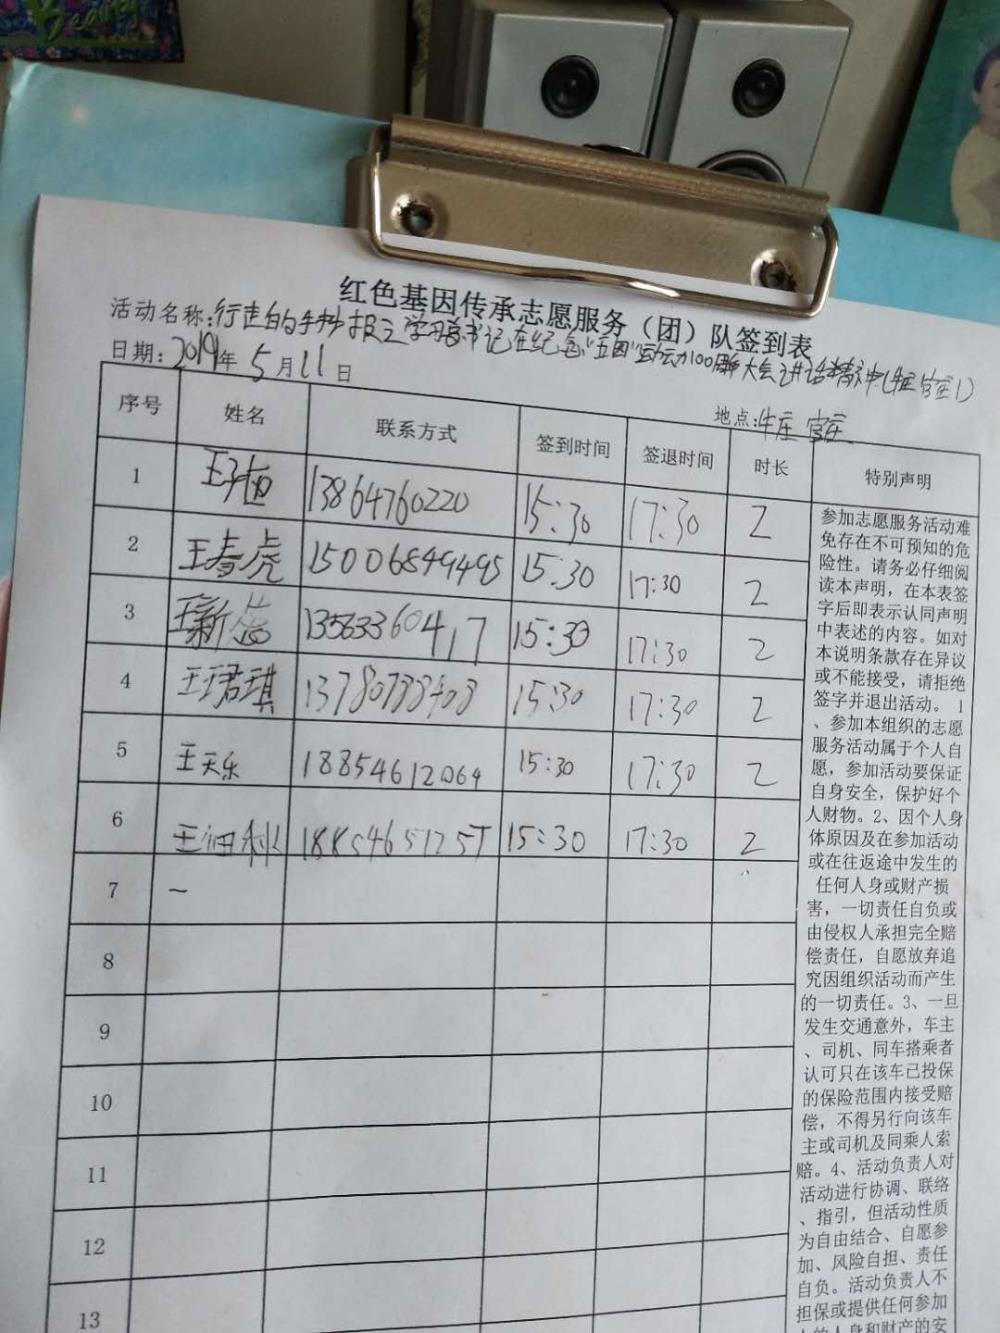 Beauty
红色基因传承志愿服务（团）队签到表
活动名称:行走的手抄报之学习总书记在纪念"五四"运动100周年大会讲话精神(牛庄官庄)
日期:2019年5月11日
地点:牛庄官庄
序号 姓名 联系方式 签到时间 签退时间 时长 特别声明
1 王子 13864760220 15:30 17:30 2
2 王春虎 15006849495 15:30 17:30 2
3 王新 13563360417 15:30 17:30 2
4 王珺琪 13780788408 15:30 17:30 2
5 王天乐 18854612064 15:30 17:30 2
6 王 18854651257 15:30 17:30 2
7
8
9
10
11
12
13
参加志愿服务活动难
免存在不可预知的危
险性。请务必仔细阅
读本声明，在本表签
字后即表示认同声明
中表述的内容。如对
本说明条款存在异议
或不能接受，请拒绝
签字并退出活动。 1
、参加本组织的志愿
服务活动属于个人自
愿，参加活动要保证
自身安全，保护好个
人财物。2、因个人身
体原因及在参加活动
或在往返途中发生的
任何人身或财产损
害，一切责任自负或
由侵权人承担完全赔
偿责任，自愿放弃追
究因组织活动而产生
的一切责任。3、一旦
发生交通意外，车主
、司机、同车搭乘者
认可只在该车已投保
的保险范围内接受赔
偿，不得另行向该车
主或司机及同乘人索
赔。4、活动负责人对
活动进行协调、联络
、指引，但活动性质
为自由结合、自愿参
加、风险自担、责任
自负。活动负责人不
担保或提供任何参加
人的人身和财产的安